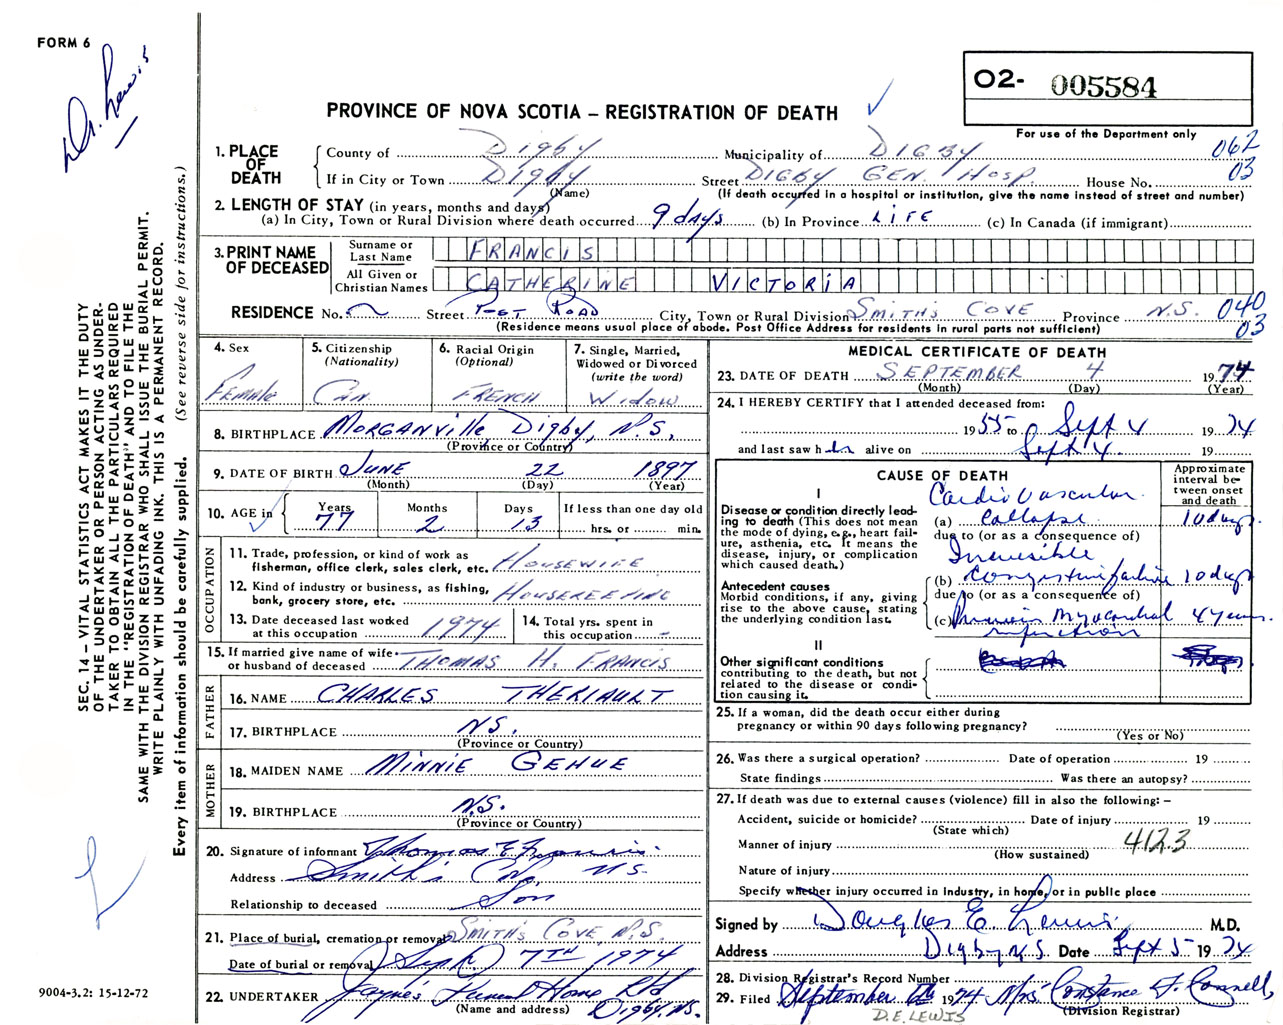 FORM 6
Dr. Lewis
O2- 005584
PROVINCE OF NOVA SCOTIA – REGISTRATION OF DEATH
For use of the Department only
062
03
1. PLACE OF DEATH
County of Digby Municipality of DIGBY
If in City or Town Digby Street DIGBY GEN. HOSP. House No.
(Name) (If death occurred in a hospital or institution, give the name instead of street and number)
2. LENGTH OF STAY (in years, months and days)
(a) In City, Town or Rural Division where death occurred 9 days (b) In Province LIFE (c) In Canada (if immigrant)
3. PRINT NAME OF DECEASED
Surname or Last Name FRANCIS
All Given or Christian Names CATHERINE VICTORIA
RESIDENCE No. Street POST ROAD City, Town or Rural Division SMITH'S COVE Province N.S. 040
03
(Residence means usual place of abode. Post Office Address for residents in rural parts not sufficient)
4. Sex Female
5. Citizenship (Nationality) Can
6. Racial Origin (Optional) FRENCH
7. Single, Married, Widowed or Divorced (write the word) Widow
8. BIRTHPLACE Morganville Digby, N.S.
(Province or Country)
9. DATE OF BIRTH JUNE 22 1897
(Month) (Day) (Year)
10. AGE in Years 77 Months 2 Days 13 If less than one day old
hrs. or min.
OCCUPATION
11. Trade, profession, or kind of work as fisherman, office clerk, sales clerk, etc. HOUSEWIFE
12. Kind of industry or business, as fishing, bank, grocery store, etc. HOUSEKEEPING
13. Date deceased last worked at this occupation 1974
14. Total yrs. spent in this occupation -
15. If married give name of wife or husband of deceased THOMAS H. FRANCIS
FATHER
16. NAME CHARLES THERIAULT
17. BIRTHPLACE N.S.
(Province or Country)
MOTHER
18. MAIDEN NAME MINNIE GEHUE
19. BIRTHPLACE N.S.
(Province or Country)
20. Signature of informant Thomas E Francis
Address Smith's Cove, N.S.
Relationship to deceased Son
21. Place of burial, cremation or removal SMITH'S COVE, N.S.
Date of burial or removal Sept 7TH 1974
22. UNDERTAKER Jayne's Funeral Home Ltd
(Name and address) Digby, N.S.
MEDICAL CERTIFICATE OF DEATH
23. DATE OF DEATH SEPTEMBER 4 1974
(Month) (Day) (Year)
24. I HEREBY CERTIFY that I attended deceased from:
1955 to Sept 4 1974
and last saw her alive on Sept 4 19
CAUSE OF DEATH
Approximate interval between onset and death
I
Disease or condition directly leading to death (This does not mean the mode of dying, e.g., heart failure, asthenia, etc. It means the disease, injury, or complication which caused death.)
Cardio Vascular
(a) Collapse 10 days
due to (or as a consequence of)
Antecedent causes
Morbid conditions, if any, giving rise to the above cause, stating the underlying condition last.
Irreversible
(b) Congestive failure 10 days
due to (or as a consequence of)
(c) Previous Myocardial 4 years
infarction
II
Other significant conditions contributing to the death, but not related to the disease or condition causing it.
25. If a woman, did the death occur either during pregnancy or within 90 days following pregnancy?
(Yes or No)
26. Was there a surgical operation? Date of operation 19
State findings Was there an autopsy?
27. If death was due to external causes (violence) fill in also the following: –
Accident, suicide or homicide? Date of injury 19
(State which)
Manner of injury 412.3
(How sustained)
Nature of injury
Specify whether injury occurred in Industry, in home, or in public place
Signed by Douglas E. Lewis M.D.
Address Digby N.S. Date Sept 5 1974
28. Division Registrar's Record Number
29. Filed September 1974 Mrs Constance F. Connell
(Division Registrar)
D.E. LEWIS
SEC. 14 – VITAL STATISTICS ACT MAKES IT THE DUTY
OF THE UNDERTAKER OR PERSON ACTING AS UNDER-
TAKER TO OBTAIN ALL THE PARTICULARS REQUIRED
IN THE "REGISTRATION OF DEATH" AND TO FILE THE
SAME WITH THE DIVISION REGISTRAR WHO SHALL ISSUE THE BURIAL PERMIT.
WRITE PLAINLY WITH UNFADING INK. THIS IS A PERMANENT RECORD.
Every item of information should be carefully supplied. (See reverse side for instructions.)
9004-3.2: 15-12-72